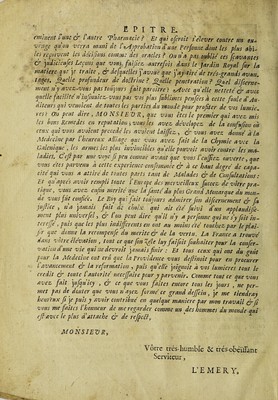 EPITRE.
éminent l'une & l'autre Pharmacie? Et qui oseroit s'élever contre un ou-
vrage qu'on verra muni de l'Approbation d'une Personne dont les plus habi-
les reçoivent les décisions comme des oracles? On n'a pas oublié ces sçavantes
& judicieuses Leçons que vous faisiez autrefois dans le Jardin Royal sur la
matiere que je traite, & desquelles j'avouë que j'ay tiré de trés-grands avan-
tages. Quelle profondeur de doctrine? Quelle penetration? Quel discerne-
ment n'y avez-vous pas toûjours fait paroître? Avec quelle netteté & avec
quelle facilité n'insinuiez-vous pas vos plus sublimes pensées à cette foule d'Au-
diteurs qui venoient de toutes les parties du monde pour profiter de vos lumie-
res? On peut dire, MONSIEUR, que vous êtes le premier qui avez mis
les bons Remedes en reputation; vous les avez développez de la confusion où
ceux qui vous avoient precedé les avoient laissez, & vous avez donné à la
Medecine par l'heureux Alliage que vous avez fait de la Chymie avec la
Galenique, les armes les plus invincibles qu'elle pouvoit avoir contre les ma-
ladies. C'est par une voye si peu connuë avant que vous l'eussiez ouverte, que
vous êtes parvenu à cette experience consommée & à ce haut degré de capa-
cité qui vous a attiré de toutes parts tant de Malades & de Consultations:
Et qu'aprés avoir rempli toute l'Europe des merveilleux succez de votre pra-
tique, vous avez enfin merité que la santé du plus Grand Monarque du mon-
de vous fut confiée. Le Roy qui fait toûjours admirer son discernement & sa
justice, n'a jamais fait de choix qui ait été suivi d'un applaudisse-
ment plus universel, & l'on peut dire qu'il n'y a personne qui ne s'y soit in-
teressé, puis que les plus indifferents en ont au moins été touchez par le plai-
sir que donne la recompense du merite & de la vertu. La France a trouvé
dans votre élevation, tout ce que son zele luy faisoit souhaiter pour la conser-
vation d'une vie qui ne devroit jamais finir: Et tous ceux qui ont du goût
pour la Medecine ont crû que la Providence vous destinoit pour en procurer
l'avancement & la reformation, puis qu'elle joignoit à vos lumieres tout le
credit & toute l'autorité necessaires pour y parvenir. Comme tout ce que vous
avez fait jusqu'icy, & ce que vous faites encore tous les jours, ne per-
met pas de douter que vous n'ayez formé ce grand dessein, je me tiendray
heureux si je puis y avoir contribué en quelque maniere par mon travail & si
vous me faites l'honneur de me regarder comme un des hommes du monde qui
est avec le plus d'attache & de respect,
MONSIEUR,
Vôtre trés-humble & trés-obéïssant
Serviteur,
L'EMERY.